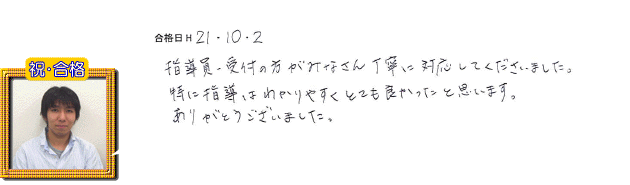 合格日 H 21・10・2
祝・合格
指導員・受付の方がみなさん丁寧に対応してくださいました。
特に指導はわかりやすくとても良かったと思います。
ありがとうございました。